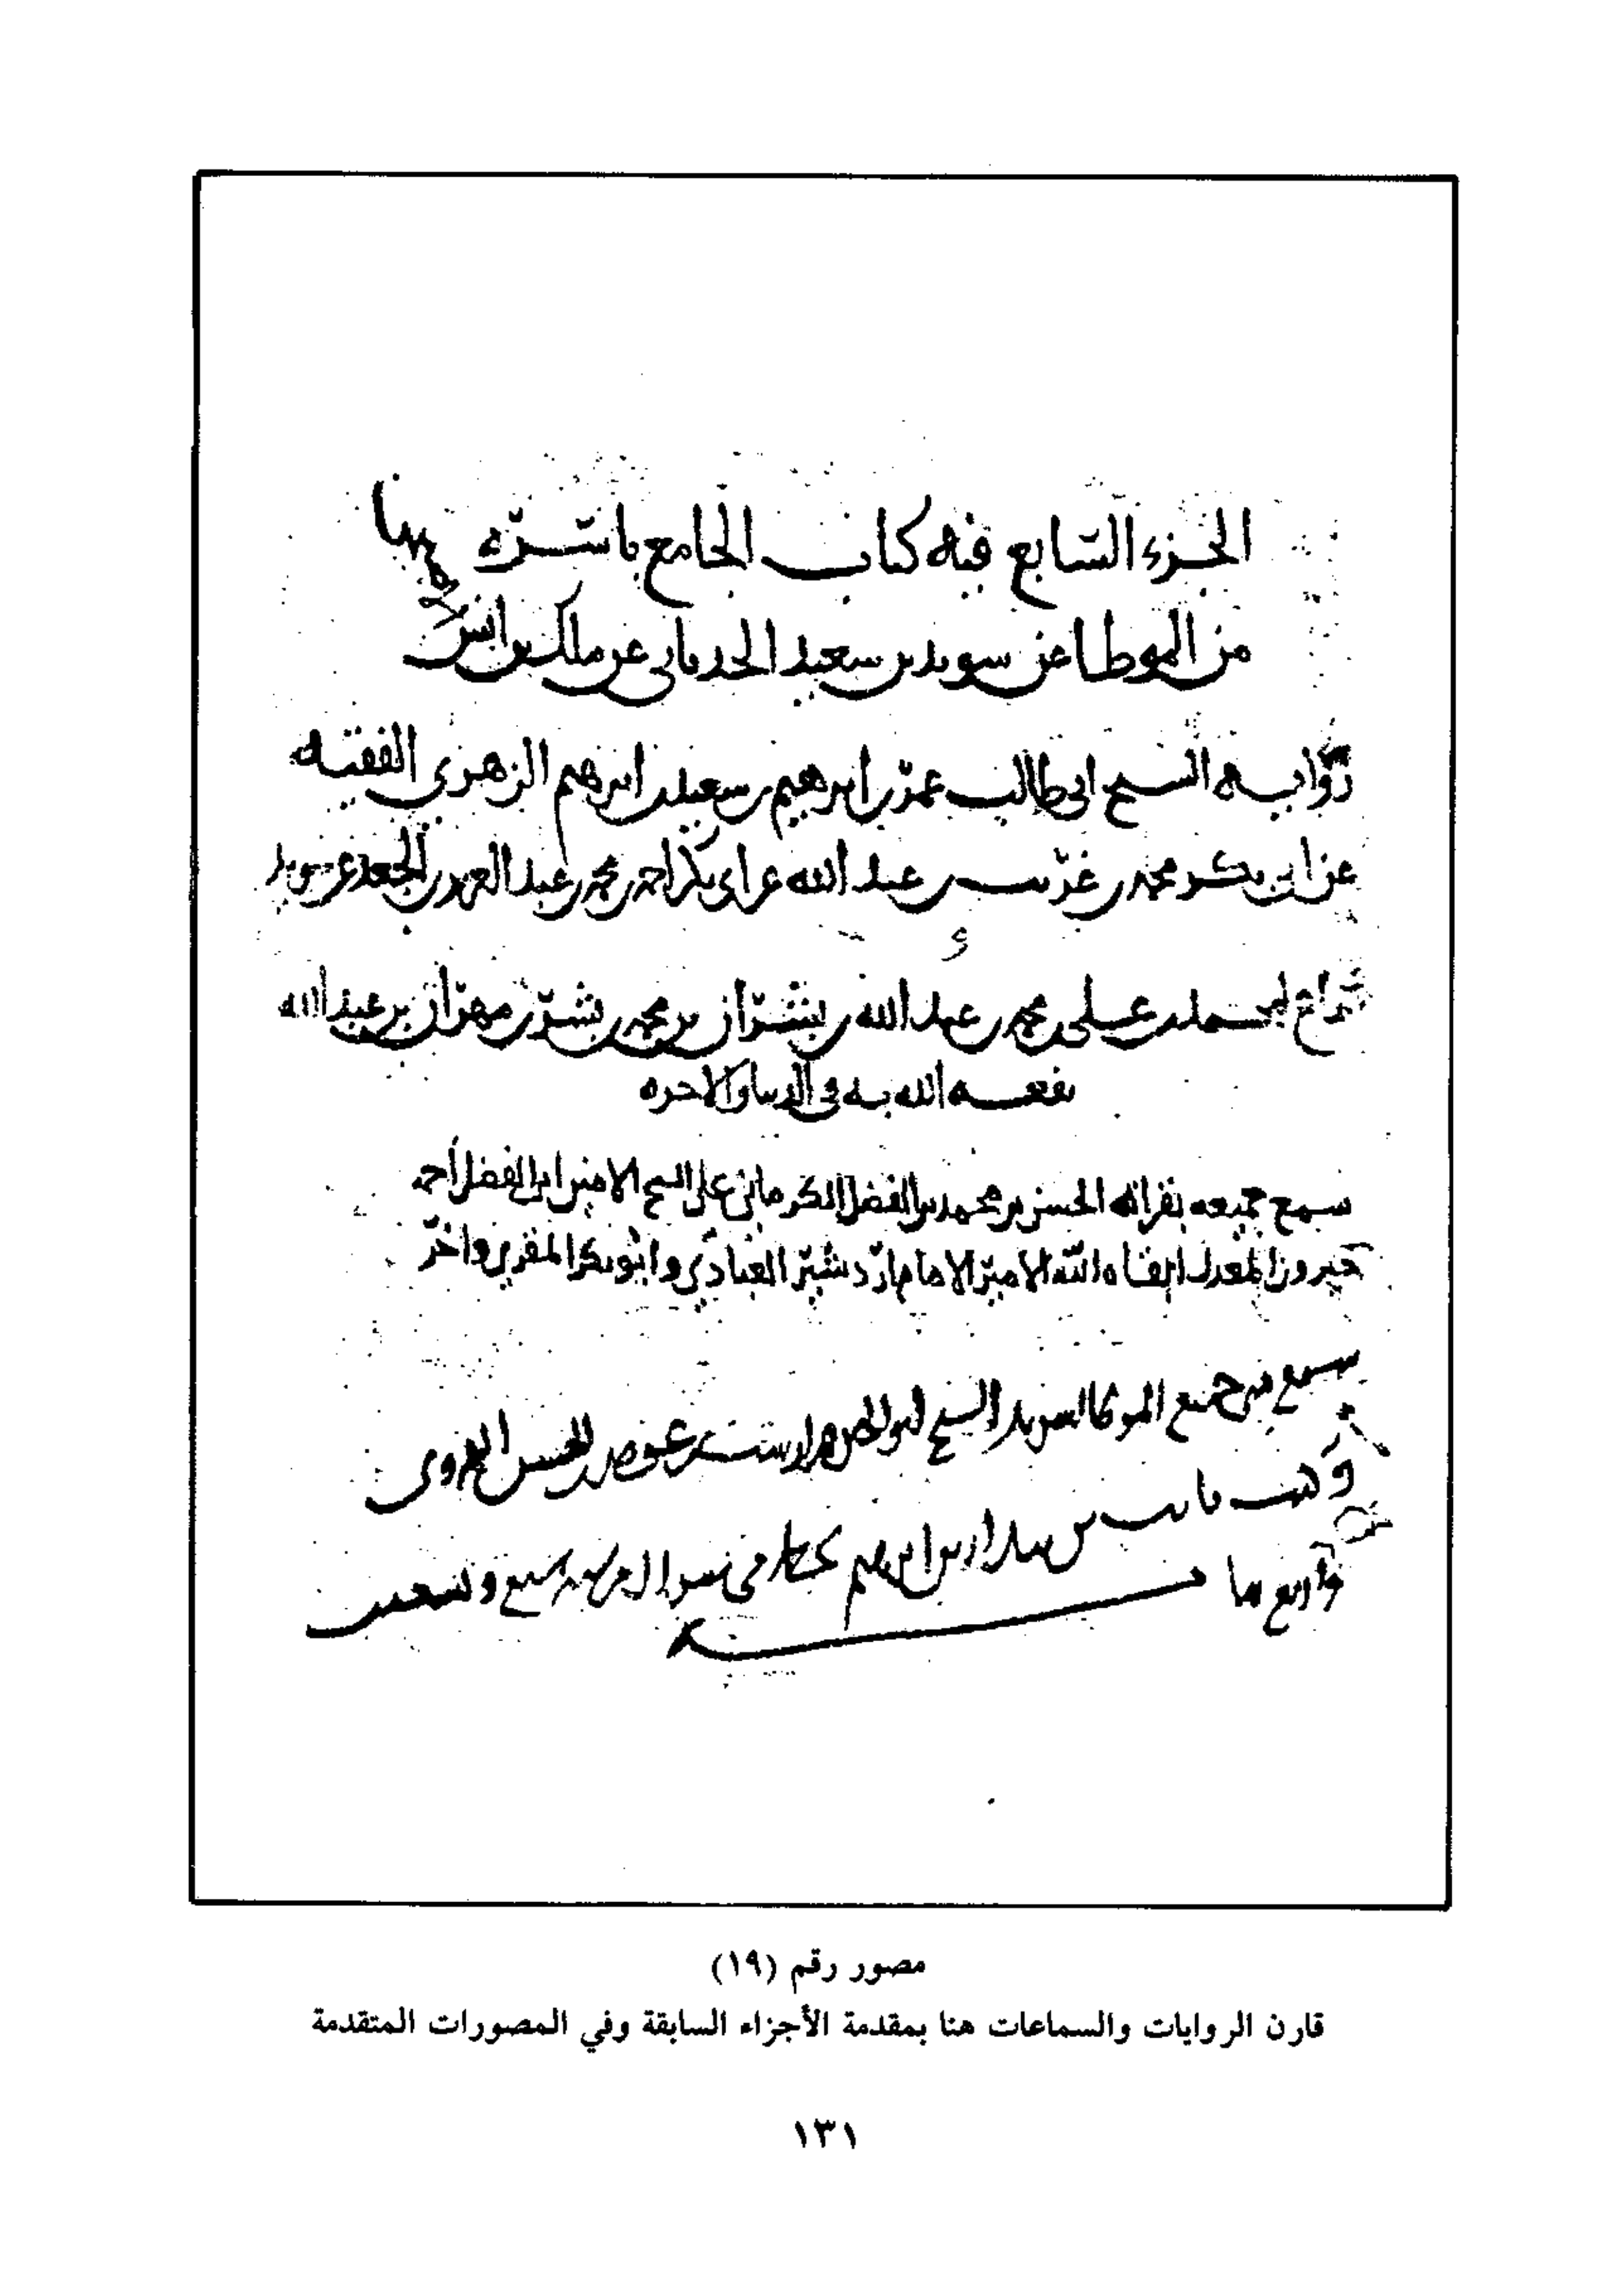 الجزء السابع فيه كتاب الجامع باسره
من الموطا عن سويد بن سعيد الحدثاني عن ملك بن انس
رواية الشيخ ابي طالب عمر بن ابرهيم بن سعيد بن ابرهيم الزهري الفقيه
عن ابي بكر محمد بن غريب بن عبد الله عن ابي بكر احمد بن محمد بن الجعد عن سويد
سماع لمحمد بن علي بن محمد بن عبد الله بن بشران بن محمد بن بشر بن مهران بن عبد الله
نفعه الله به في الدنيا والاخره
سمع جميعه بقراة الحسن بن محمد بن الفضل الكرماني على الشيخ الامين ابي الفضل احمد
خيرون المعدل ابقاه الله الامير الامام اردشير العبادي وابو بكر المقري واخر
سمع من جميع الموطا الشيخ ابو
وكتب ثابت بن بندار بن ابرهيم في شوال
واربع مايه
مصور رقم (١٩)
قارن الروايات والسماعات هنا بمقدمة الأجزاء السابقة وفي المصورات المتقدمة
١٣١